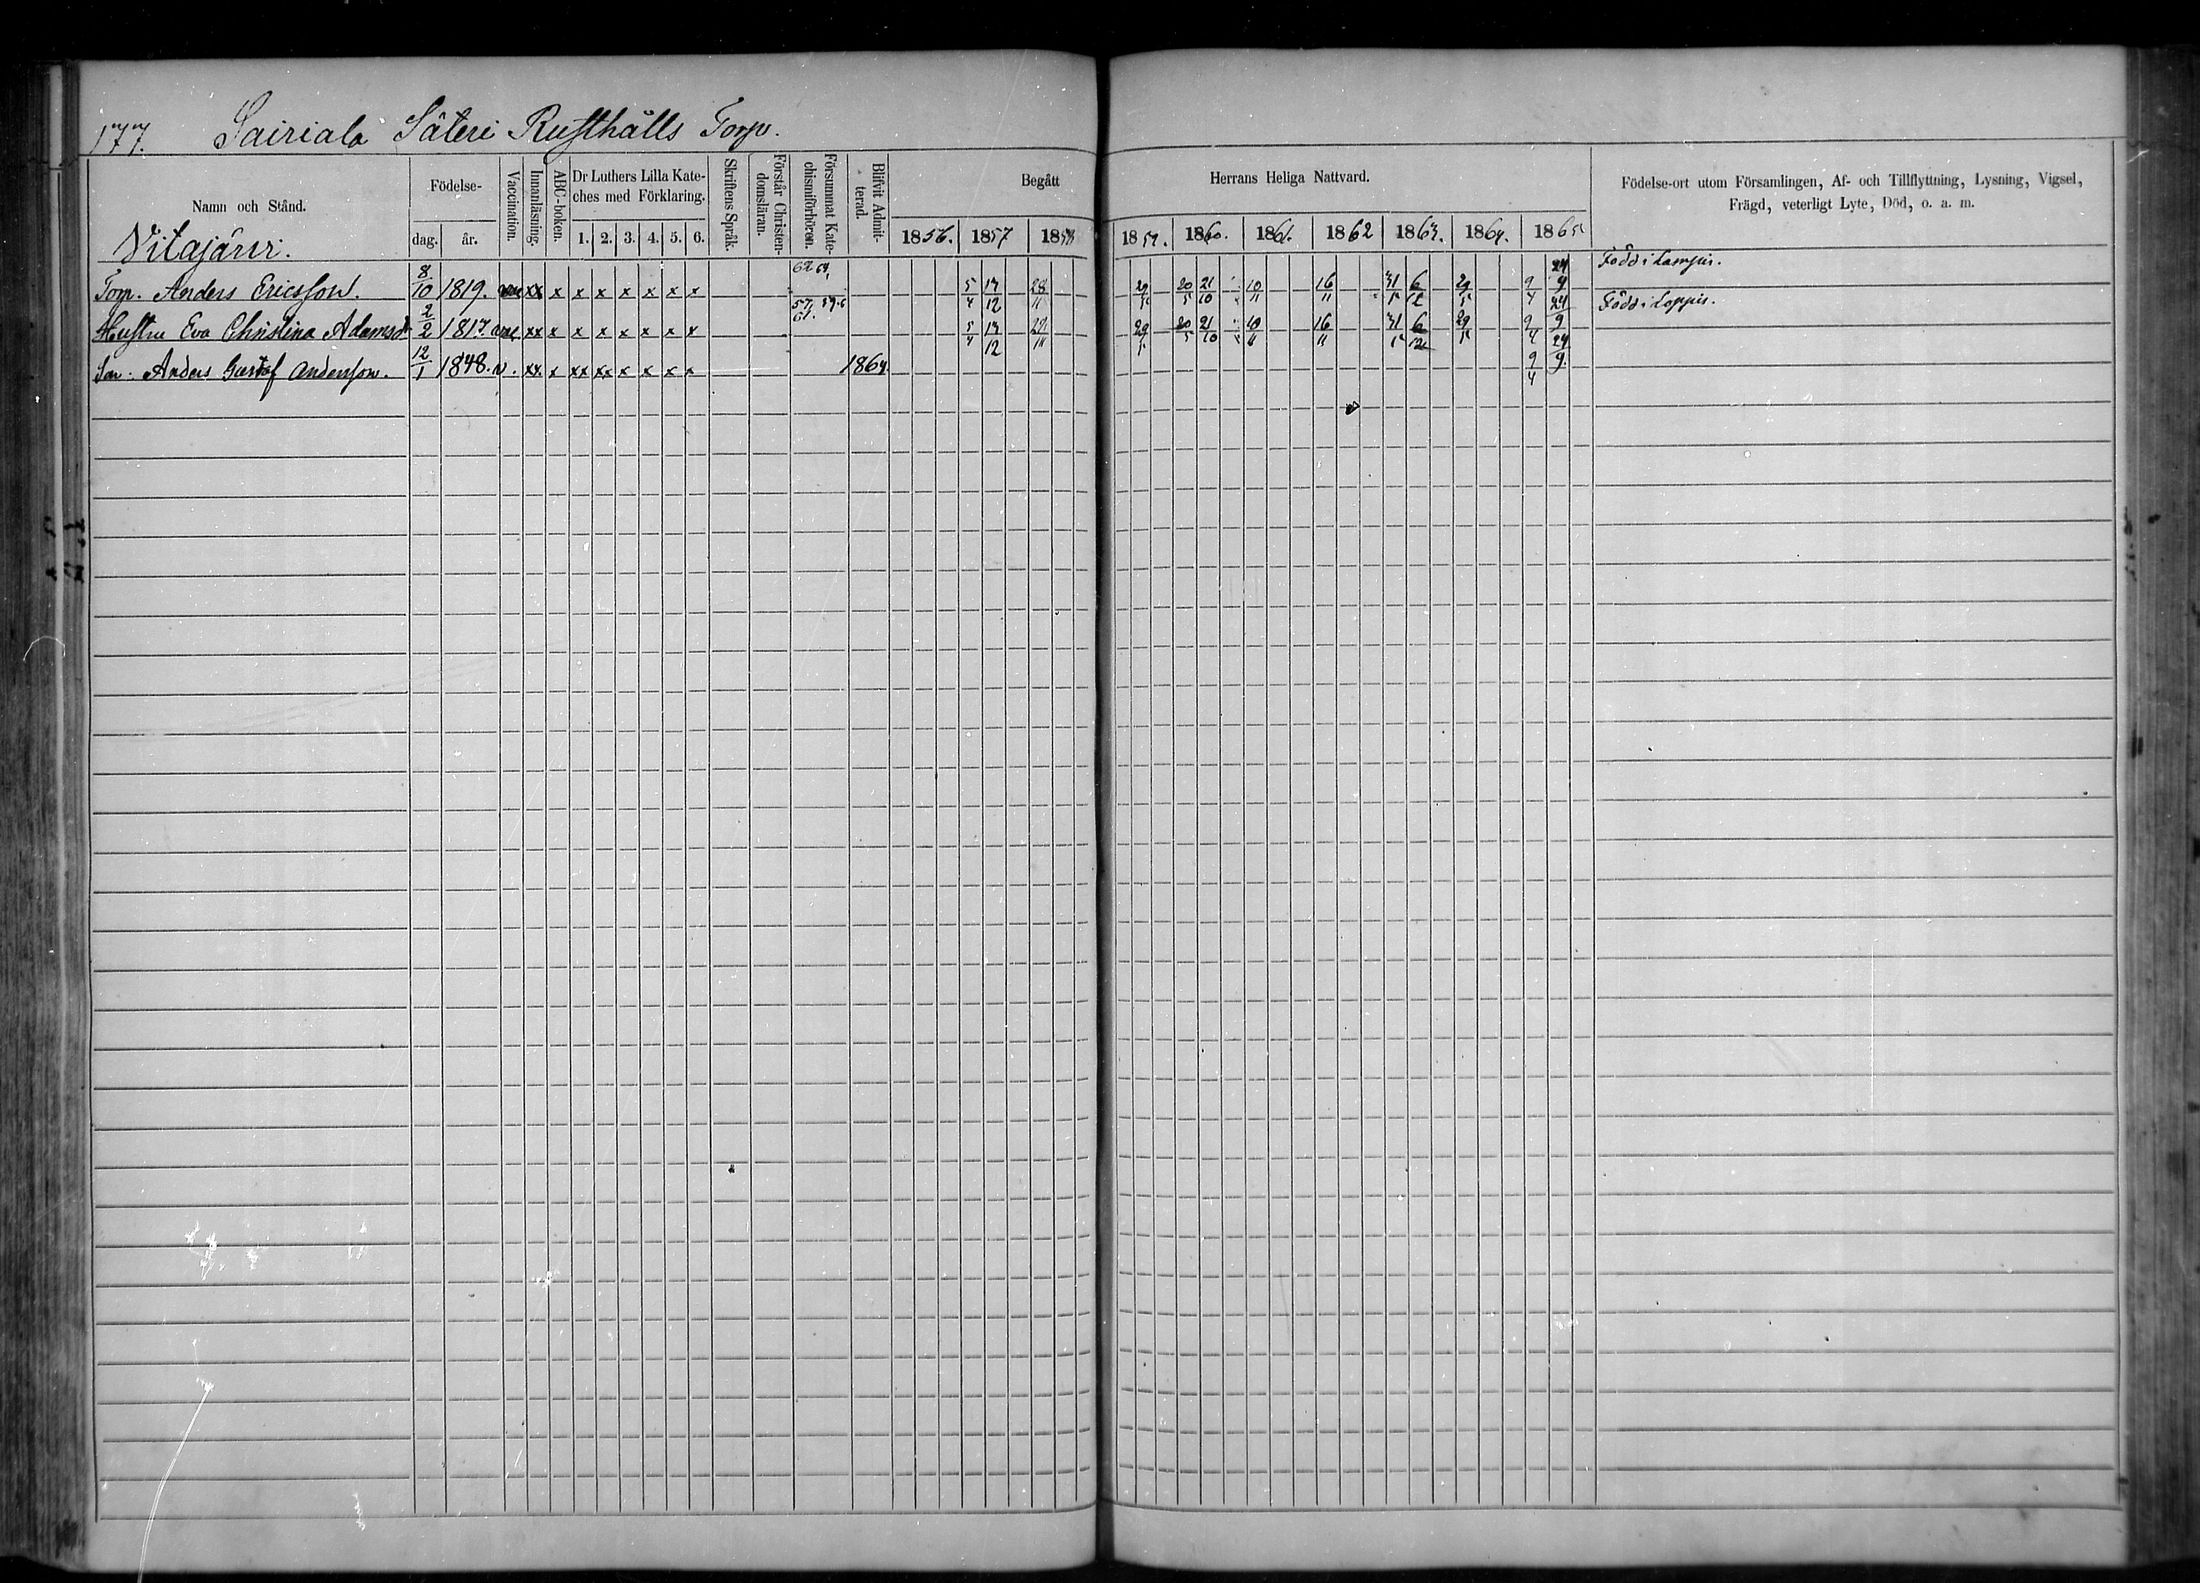 177. Sairiala Säteri Rusthålls Torp.
Namn och Stånd.
Födelse-
dag. år.
Vaccination.
Innanläsning.
ABC-boken.
Dr Luthers Lilla Kate-
ches med Förklaring.
1. 2. 3. 4. 5. 6.
Skriftens Språk.
Förstår Christen-
domsläran.
Försummat Kate-
chismiförhören.
Blifvit Admit-
terad.
Begått Herrans Heliga Nattvard.
1856. 1857 1858 1859. 1860. 1861. 1862 1863. 1864. 1865
Födelse-ort utom Församlingen, Af- och Tillflyttning, Lysning, Vigsel,
Frägd, veterligt Lyte, Död, o. a. m.
Vitajärvi.
Torp. Anders Ericsson. 8/10 1819. xx x x x x x x x 5/4 13/12 28/11 29/5 20/5 21/10 10/11 16/11 31/5 6/12 29/5 9/4 24/9 Född i Lampis.
Hustru Eva Christina Adamsd 2/2 1817. vac xx x x x x x x x 57. 59. 61. 5/4 13/12 29/11 29/5 20/5 21/10 10/11 16/11 31/5 6/12 29/5 9/4 24/9 Född i Loppis.
Son. Anders Gustaf Andersson. 12/1 1848. v. xx x xx xx x x x x 1864. 9/4 24/9